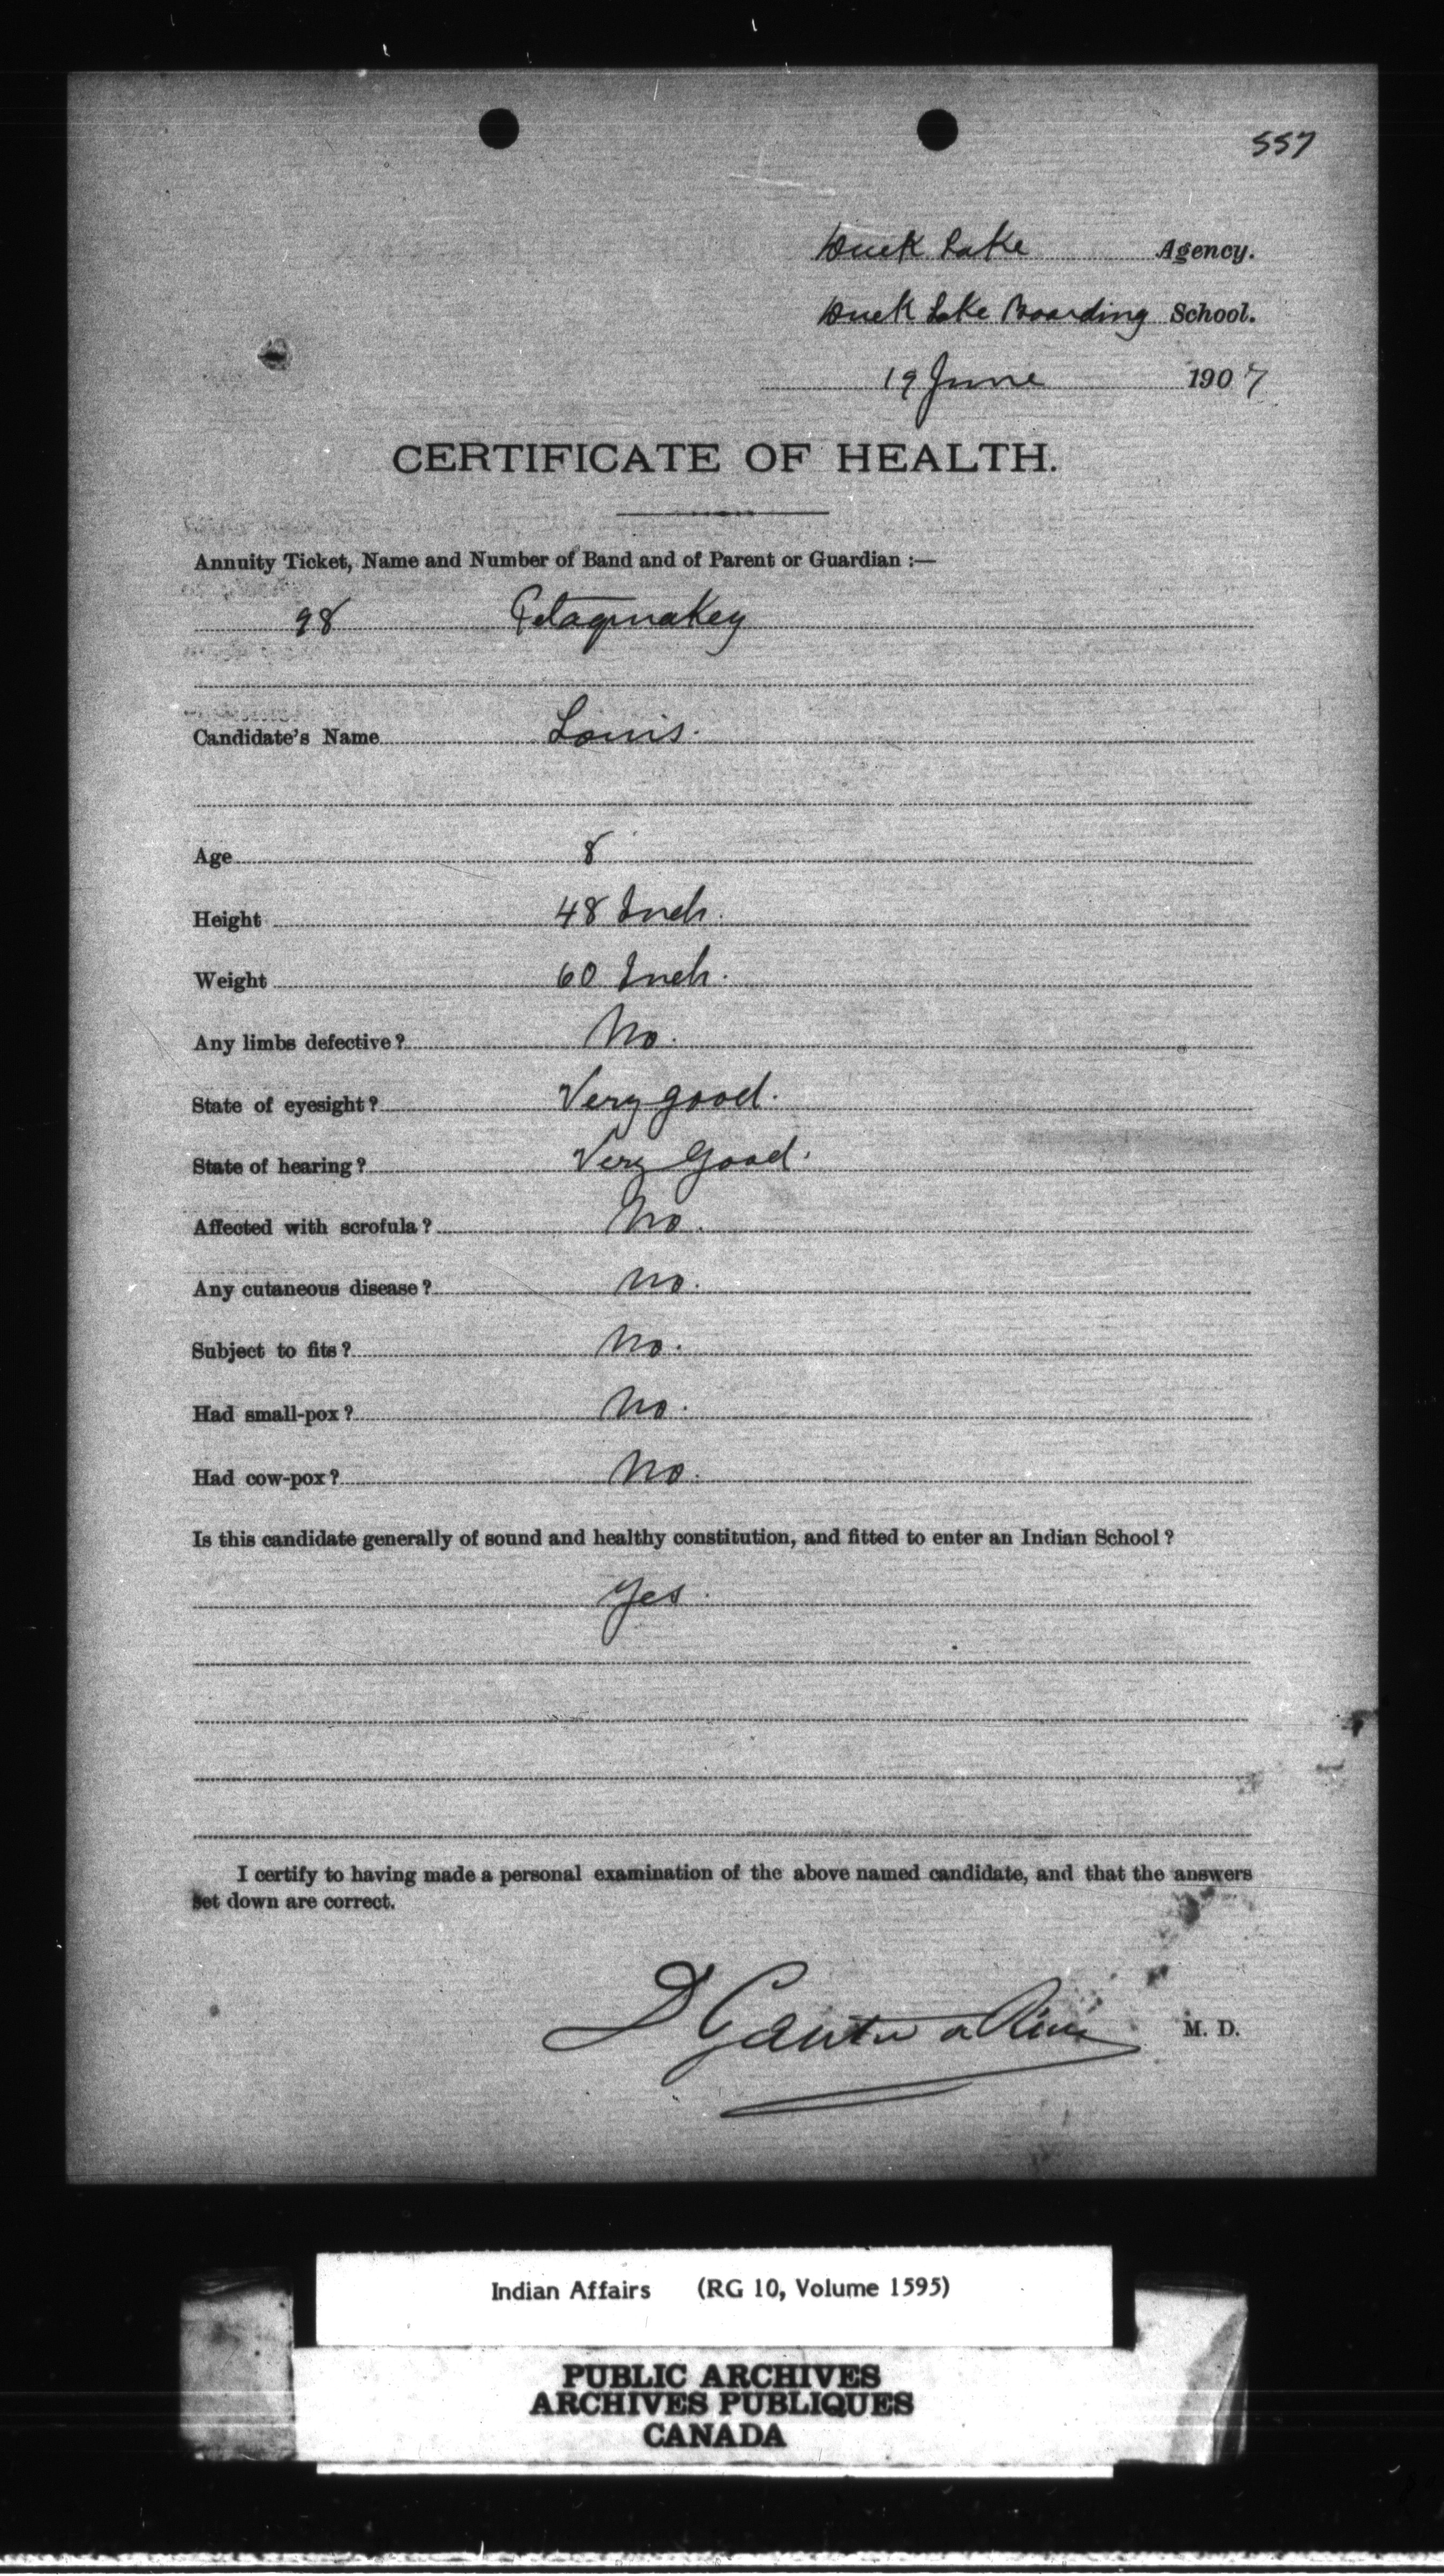 557
Duck Lake Agency.
Duck Lake Boarding School.
19 June 1907
CERTIFICATE OF HEALTH.
Annuity Ticket, Name and Number of Band and of Parent or Guardian :—
98
Candidate's Name Louis.
Age 8
Height 48 Inch.
Weight 60 Inch.
Any limbs defective? No.
State of eyesight? Very good.
State of hearing? Very Good.
Affected with scrofula? No.
Any cutaneous disease? No.
Subject to fits? No.
Had small-pox? No.
Had cow-pox? No.
Is this candidate generally of sound and healthy constitution, and fitted to enter an Indian School?
Yes.
I certify to having made a personal examination of the above named candidate, and that the answers
set down are correct.
M. D.
Indian Affairs (RG 10, Volume 1595)
PUBLIC ARCHIVES
ARCHIVES PUBLIQUES
CANADA